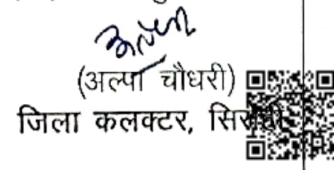 (अल्पा चौधरी)
जिला कलक्टर,